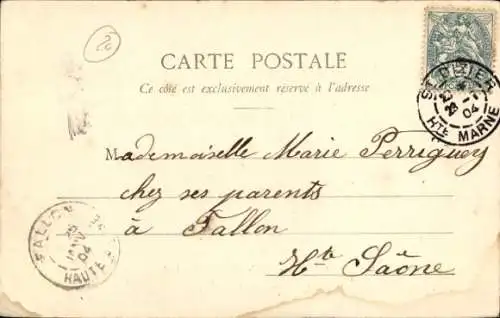 20
CARTE POSTALE
Ce côté est exclusivement réservé à l'adresse
ST DIZIER
28 -1
04
HTE MARNE
Mademoiselle Marie Perriguey
chez ses parents
à Fallon
Hte Saône
FALLON
JANV
04
HAUTE